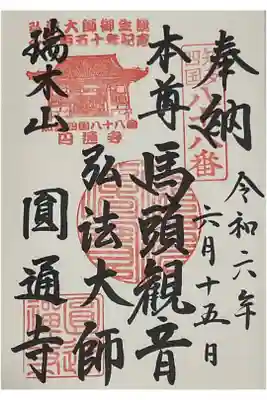 奉納
八十八番
令和六年
六月十五日
本尊 馬頭観音
弘法大師
瑞木山
圓通寺
大師御生誕
百五十年記念
四国八十八番
円通寺